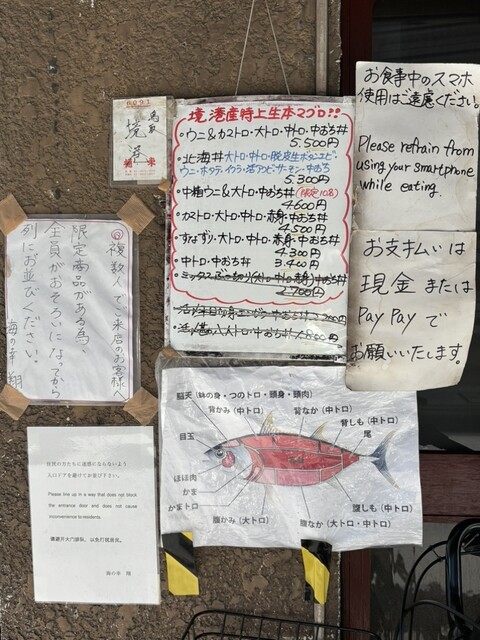 鳥取
境港
境港産特上生本マグロ!!
・ウニ&カマトロ・大トロ・中トロ・中おち丼
5.500円
・北海丼 大トロ・中トロ・脱皮生ボタンエビ
ウニ・ホタテ・イクラ・活アワビ・サーモン・中おち
5.300円
・中トロ・中おち丼
3.400円
4.600円
・カマトロ・大トロ・中トロ・赤身・中おち丼
4.500円
4.300円
2.700円
お食事中のスマホ
使用はご遠慮ください。
Please refrain from
using your smartphone
while eating.
お支払いは
現金 または
Pay Pay で
お願いいたします。
◎複数人でご来店のお客様へ
限定商品がある為
全員がおそろいになってから
列にお並びください!
海の幸 翔
住民の方たちに迷惑にならないよう
入口ドアを避けてお並び下さい。
Please line up in a way that does not block
the entrance door and does not cause
inconvenience to residents.
海の幸 翔
脳天(鉢の身・つのトロ・頭身・頭肉)
背かみ(中トロ)
背なか(中トロ)
背しも(中トロ)
尾
目玉
ほほ肉
かま
かまトロ
腹かみ(大トロ)
腹なか(大トロ・中トロ)
腹しも(中トロ)